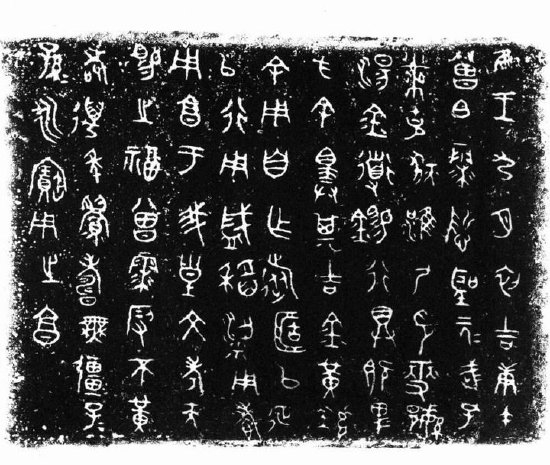 隹王九月初吉庚午
曾白霥哲聖元武孔
黹克狄淮夷印燮鄀
湯金道錫行具既卑
方余擇其吉金黃鑪
余用自乍旅匿以征
以行用盛稻粱用孝
用享于我皇文考天
賜之福曾霥叚不黃
耇萬年眉壽無疆子
孫永寶用之享